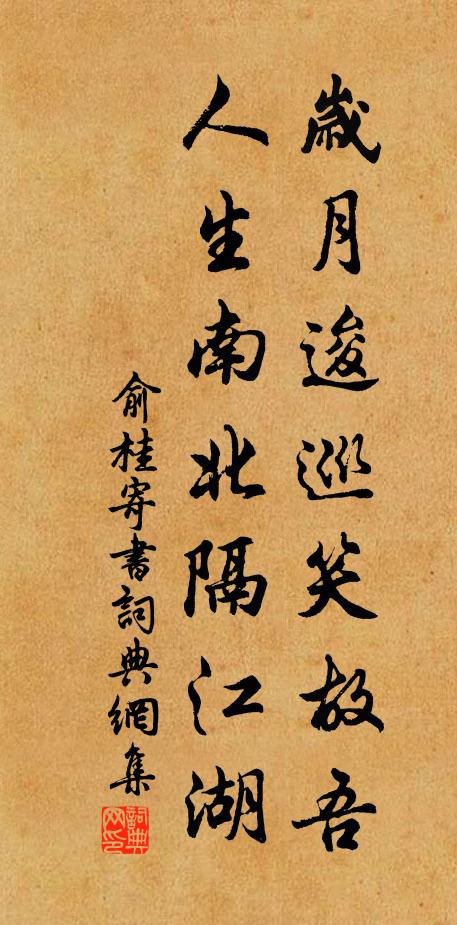 歲月逡巡笑故吾
人生南北隔江湖
俞桂寄書詞典網集
詞典网印